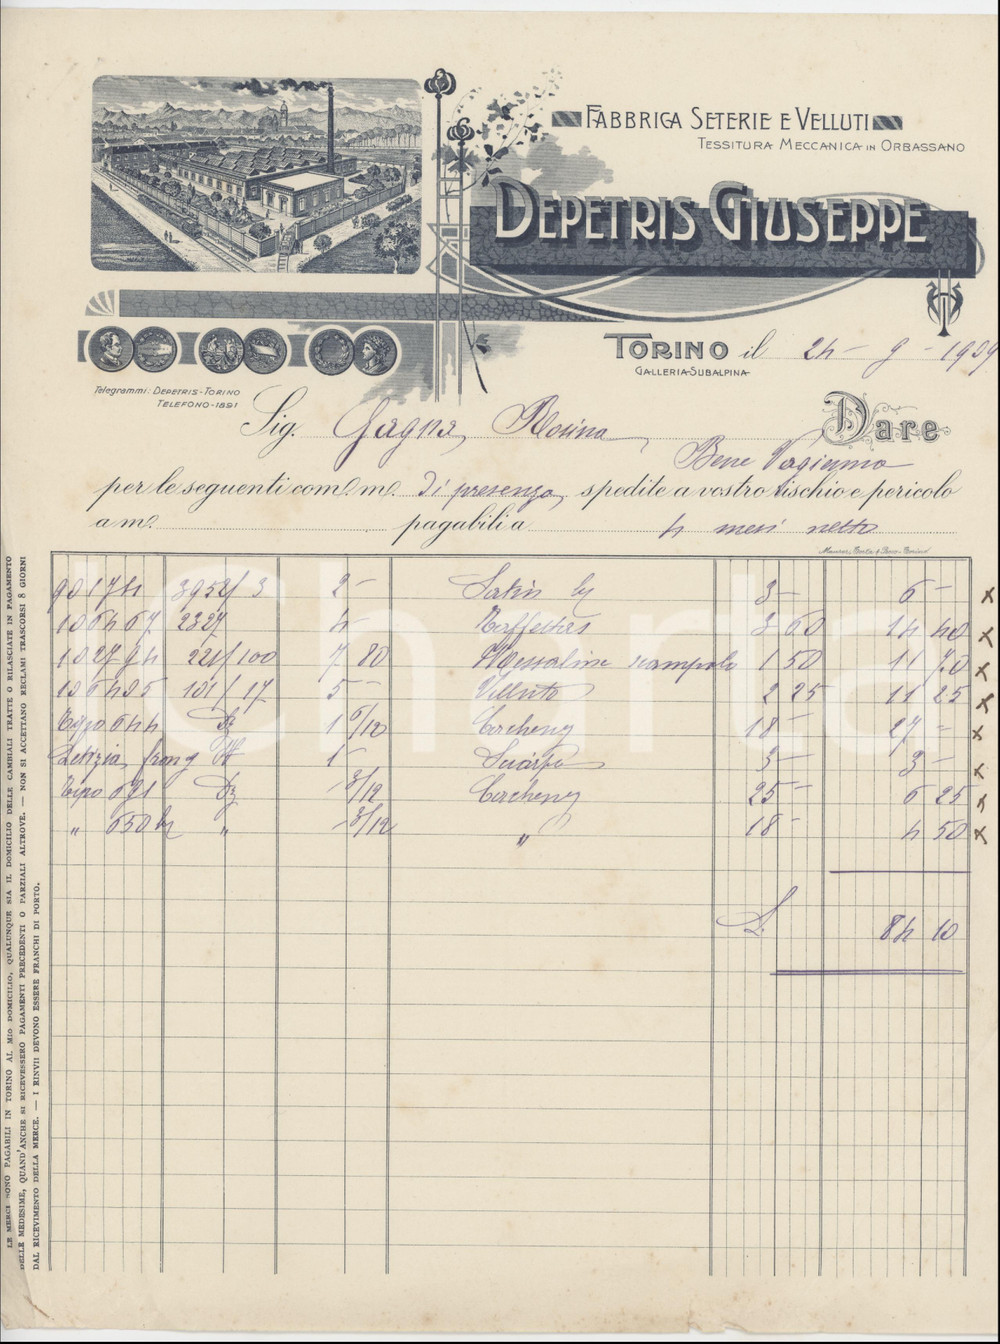 FABBRICA SETERIE E VELLUTI
TESSITURA MECCANICA IN ORBASSANO
DEPETRIS GIUSEPPE
TORINO il 24 - 9 - 1909
GALLERIA SUBALPINA
Telegrammi: DEPETRIS-TORINO
TELEFONO-1891
Sig. Gagna, Rosina Dare
Bene Vagienna
per le seguenti com. m. di presenza, spedite a vostro rischio e pericolo
a m. pagabili a 4 mesi netto
90174 3952/3 2- Satin 3- 6- x
106467 2327 4- Taffettas 3 60 14 40 x
102794 221/100 7 80 Messaline scampolo 1 50 11 70 x
106405 101/17 5- Velluto 2 25 11 25 x
Tipo 644 Dz 1 6/12 Cercheny 18- 27 = x
Letizia, frang 1- Sciarpa 3- 3- x
Tipo 691 Dz - 3/12 Cercheny 25- 6 25 x
" 650 " - 3/12 " 18- 4 50 x
L. 84 10
LE MERCI SONO PAGABILI IN TORINO AL MIO DOMICILIO, QUALUNQUE SIA IL DOMICILIO DELLE CAMBIALI TRATTE O RILASCIATE IN PAGAMENTO
DELLE MEDESIME, QUAND'ANCHE SI RICEVESSERO PAGAMENTI PRECEDENTI O PARZIALI ALTROVE. — NON SI ACCETTANO RECLAMI TRASCORSI 8 GIORNI
DAL RICEVIMENTO DELLA MERCE. — I RINVII DEVONO ESSERE FRANCHI DI PORTO.
Charta